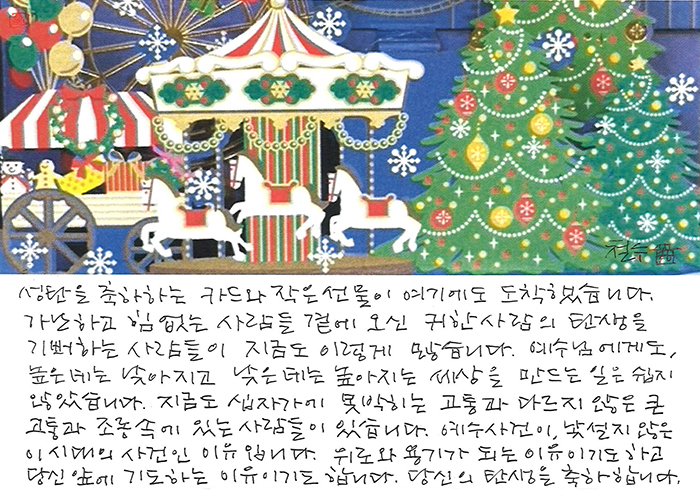 철수
성탄을 축하하는 카드와 작은 선물이 여기에도 도착했습니다.
가난하고 힘없는 사람들 곁에 오신 귀한 사람의 탄생을
기뻐하는 사람들이 지금도 이렇게 많습니다. 예수님에게도,
높은데는 낮아지고 낮은데는 높아지는 세상을 만드는 일은 쉽지
않았습니다. 지금도 십자가에 못박히는 고통과 다르지 않은 큰
고통과 조롱속에 있는 사람들이 있습니다. 예수사건이, 낯설지 않은
이 시대의 사건인 이유입니다. 위로와 용기가 되는 이유이기도 하고
당신 앞에 기도하는 이유이기도 합니다. 당신의 탄생을 축하합니다.